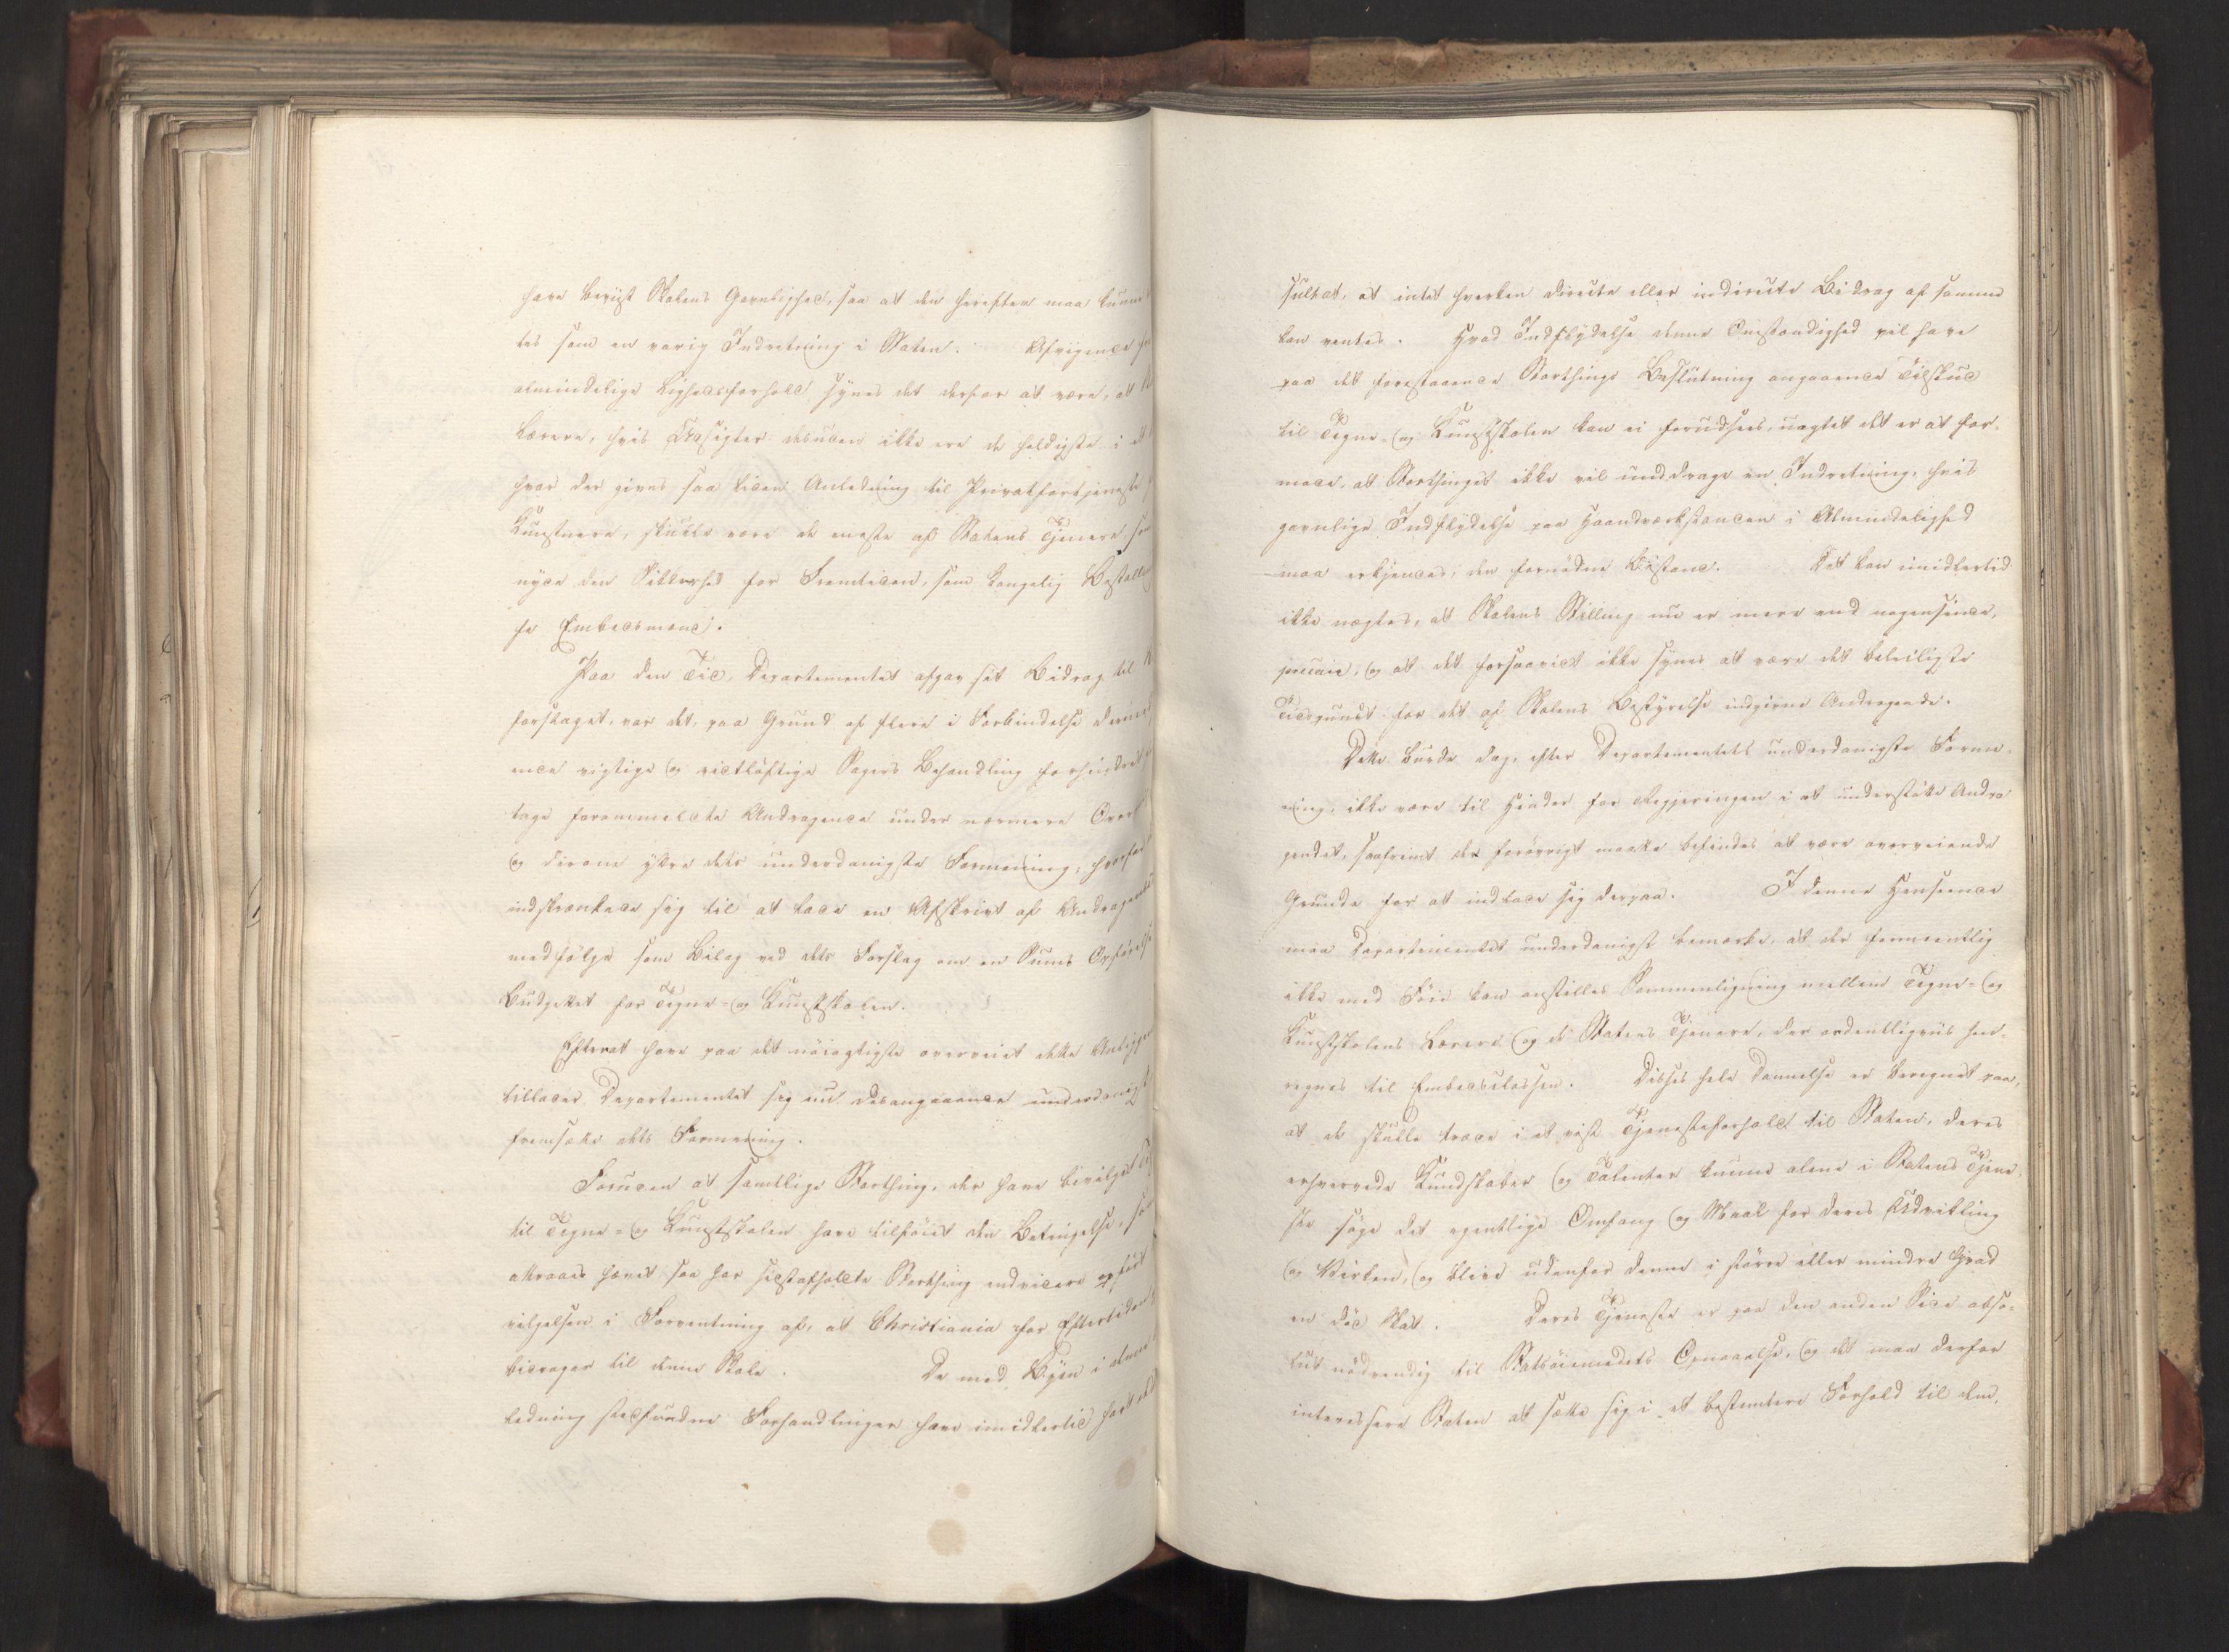 have beviist Skolens Gavnlighed, saa at den herefter maa kunne
tes som en varig Indretning i Staten. Afvigende fra
almindelige Lighedsforhold synes det derfor at være, at
Lærere, hvis Udsigter desuden ikke ere de heldigste i et
hvor der gives saa liden Anledning til Privatfortjeneste
Kunstnere, skulle være de eneste af Statens Tjenere, som
nyde den Sikkerhed for Fremtiden, som kongelig Bestalling
Embedsmænd.
Paa den Tid, Departementet afgav sit Bidrag til
forslaget, var det, paa Grund af flere i Forbindelse dermed
ende vigtige og vidtløftige Sagers Behandling forhindret
tage forommeldte Andragende under nærmere
og derom yttre dets underdanigste Formening, hvorfor
indskrænkede sig til at lade en Afskrivt af Andragendet
medfølge som Bilag ved dets Forslag om en Sums Opførelse
Budgettet for Tegne- og Kunstskolen.
Efterat have paa det nøiagtigste overveiet dette
tillader Departementet sig nu desangaaende underdanigst
fremsætte dets Formening.
Foruden at samtlige Storthing, der have bevilget
til Tegne- og Kunstskolen have tilføiet den Betingelse,
allerede hævet saa har sidstafholdte Storthing endvidere opført
vilgelsen i Forventning af, at Christiania for Eftertiden
bidrager til denne Skole. De med Byen i denne
ledning stedfundne Forhandlinger have imidlertid havt
sultat, at intet hverken directe eller indirecte Bidrag af samme
kan ventes. Hvad Indflydelse denne Omstændighed vil have
paa det forestaaende Storthings Beslutning angaaende Tilskud
til Tegne- og Kunstskolen kan ei forudsees, uagtet det er at for-
mode, at Storthinget ikke vil unddrage en Indretning, hvis
gavnlige Indflydelse paa Haandværkstanden i Almindelighed
maa erkjendes, den fornødne Bistand. Det kan imidlertid
ikke nægtes, at Skolens Stilling nu er mere end nogensinde,
precair, og at det forsaavidt ikke synes at være det beleiligste
Tidspunct for det af Skolens Bestyrelse indgivne Andragende.
Dette burde dog, efter Departementets underdanigste Forme-
ning, ikke være til Hinder for Regjeringen i at understøtte Andra-
gendet, saafremt der forøvrigt maatte befindes at være overveiende
Grunde for at indlade sig derpaa. I denne Henseende
maa Departementet underdanigst bemærke, at der formeentlig
ikke med Føie kan anstilles Sammenligning mellem Tegne- og
Kunstskolens Lærere og de Statens Tjenere, der ordentligviis hen-
regnes til Embedsclassen. Disses hele Dannelse er beregnet paa,
at de skulle træde i et vist Tjenesteforhold til Staten, deres
erhvervede Kundskaber og Talenter kunne alene i Statens Tjene-
ste søge det egentlige Omfang og Maal for deres Udvikling
og Virken, og blive udenfor denne i større eller mindre Grad
en død Skat. Deres Tjeneste er paa den anden Side abso-
lut nødvendig til Statsøiemedets Opnaaelse, og det maa derfor
interessere Staten at sætte sig i et bestemtere Forhold til dem,